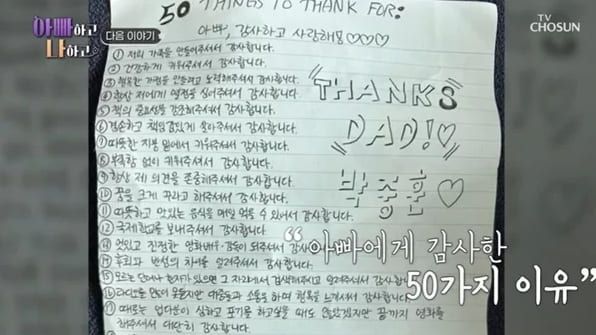 아빠하고
나하고
다음 이야기
TV
CHOSUN
50 THINGS TO THANK FOR:
아빠, 감사하고 사랑해용♡♡♡
① 저의 가족을 만들어주셔서 감사합니다.
② 건강하게 키워주셔서 감사합니다.
③ 행복한 가정을 만들려고 노력해주셔서 감사합니다.
④ 항상 저에게 열정을 심어주셔서 감사합니다.
⑤ 책의 중요성을 강조해주셔서 감사합니다.
⑥ 겸손하고 책임감있게 살아주셔서 감사합니다.
⑦ 따뜻한 지붕 밑에서 키워주셔서 감사합니다.
⑧ 부족함 없이 키워주셔서 감사합니다.
⑨ 항상 제 의견을 존중해주셔서 감사합니다.
⑩ 꿈을 크게 꾸라고 해주셔서 감사합니다.
⑪ 따뜻하고 맛있는 음식을 매일 먹을 수 있어서 감사합니다.
⑫ 국제학교를 보내주셔서 감사합니다.
⑬ 멋있고 진정한 영화배우·감독이 되주셔서 감사
⑭ 후회와 반성의 차이를 알려주셔서 감사합니다.
⑮ 모르는 단어나 한자가 있으면 그 자리에서 검색해주시고 알려주셔서 감사합니다.
⑯ 라디오를 대중들과 소통을 하며 행복을 느끼셔서 감사합니다.
⑰ 때로는 업다운이 심하고 포기를 하고싶을 때도 많았겠지만 끝까지 영화를
해주셔서 대단히 감사합니다.
THANKS
DAD!♡
박중훈♡
“아빠에게 감사한
50가지 이유”